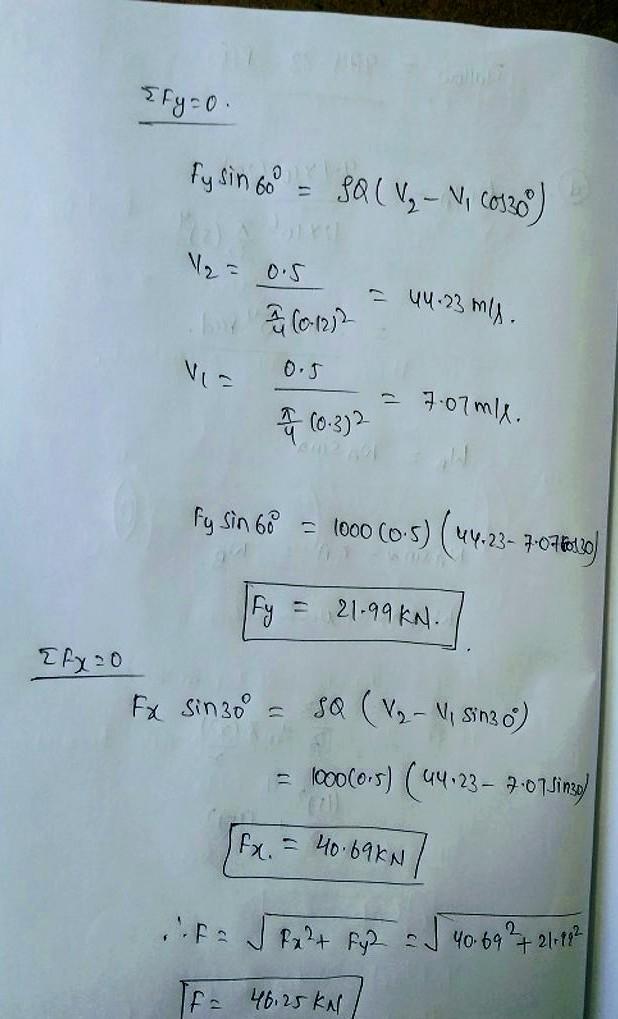 ΣFy=0.
Fy sin 60° = ρQ ( V₂ - V₁ cos30°)
V₂ = 0.5 / π/4 (0.12)² = 44.23 m/s.
V₁ = 0.5 / π/4 (0.3)² = 7.07 m/s.
Fy sin 60° = 1000 (0.5) (44.23 - 7.07cos30)
Fy = 21.99 KN.
ΣFx=0
Fx sin30° = ρQ ( V₂ - V₁ sin30°)
= 1000(0.5) (44.23 - 7.07 sin30)
Fx. = 40.69KN
∴F = √Fx²+ Fy² = √40.69²+21.99²
F = 46.25 KN